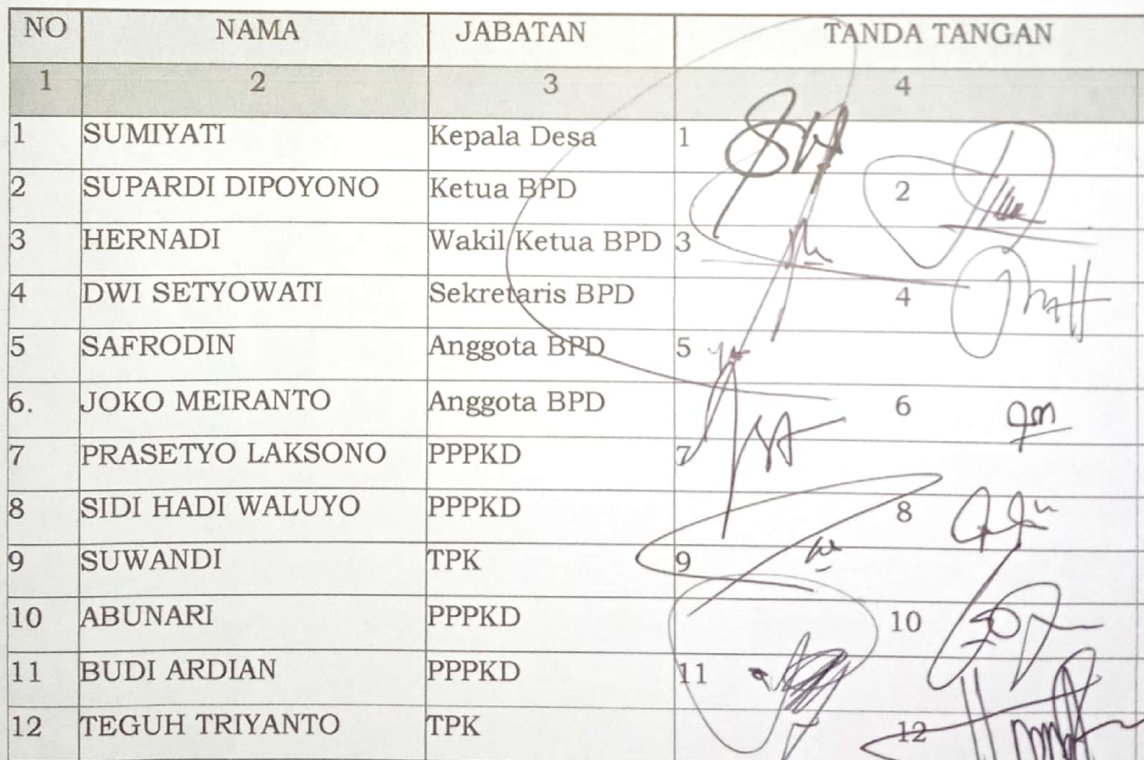 NO NAMA JABATAN TANDA TANGAN
1 2 3 4
1 SUMIYATI Kepala Desa 1
2 SUPARDI DIPOYONO Ketua BPD 2
3 HERNADI Wakil Ketua BPD 3
4 DWI SETYOWATI Sekretaris BPD 4
5 SAFRODIN Anggota BPD 5
6. JOKO MEIRANTO Anggota BPD 6
7 PRASETYO LAKSONO PPPKD 7
8 SIDI HADI WALUYO PPPKD 8
9 SUWANDI TPK 9
10 ABUNARI PPPKD 10
11 BUDI ARDIAN PPPKD 11
12 TEGUH TRIYANTO TPK 12